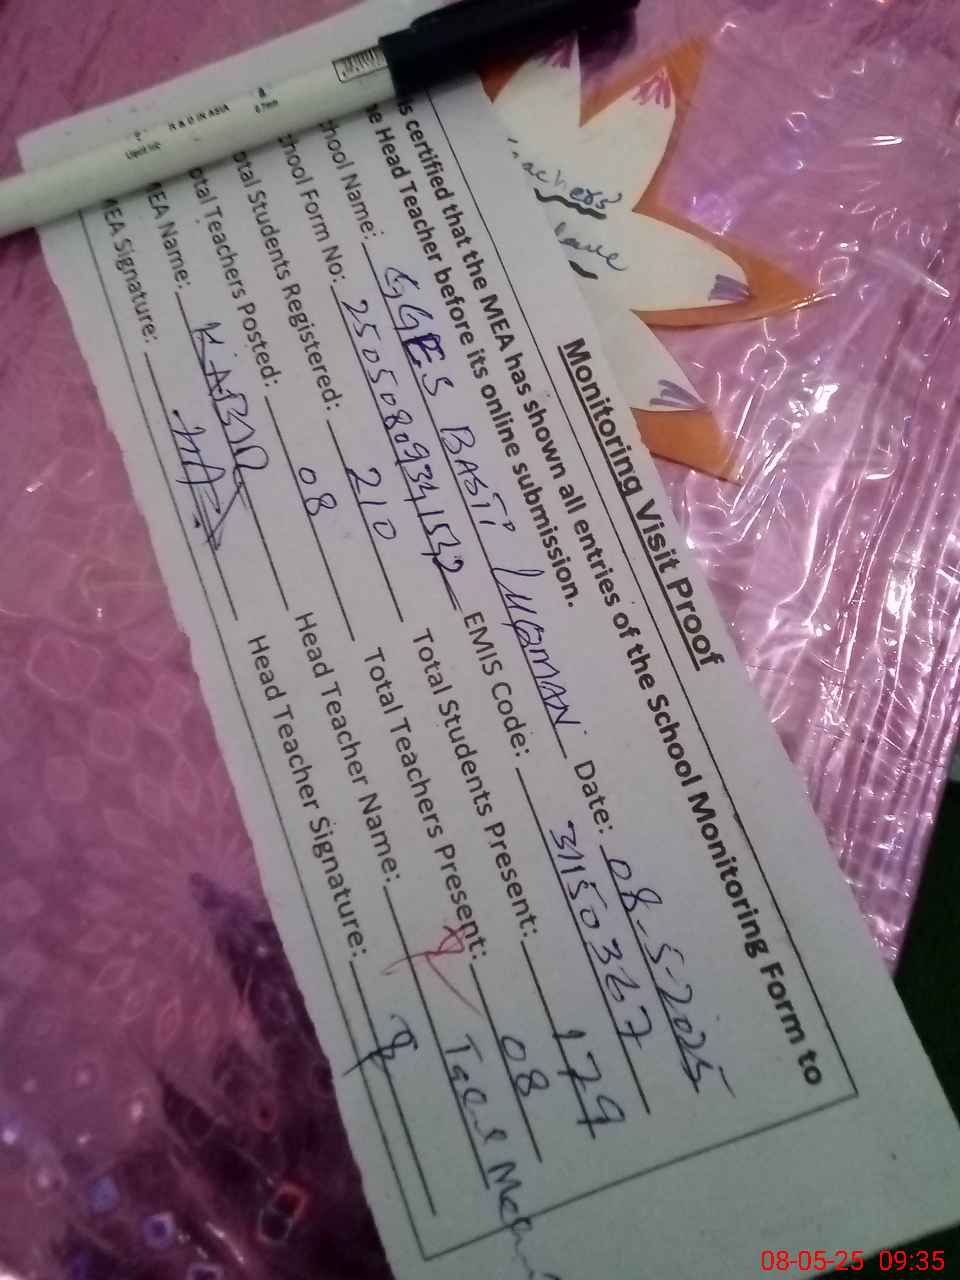 Monitoring Visit Proof
is certified that the MEA has shown all entries of the School Monitoring Form to
e Head Teacher before its online submission.
hool Name: GGPS BASTI LUQMAN Date: 08-5-2025
hool Form No: 25050809341532 EMIS Code: 31150367
otal Students Registered: 210 Total Students Present: 179
otal Teachers Posted: 08 Total Teachers Present: 08
MEA Name: KABIR Head Teacher Name:
MEA Signature: Head Teacher Signature:
MADE IN ASIA
achers'
08-05-25 09:35